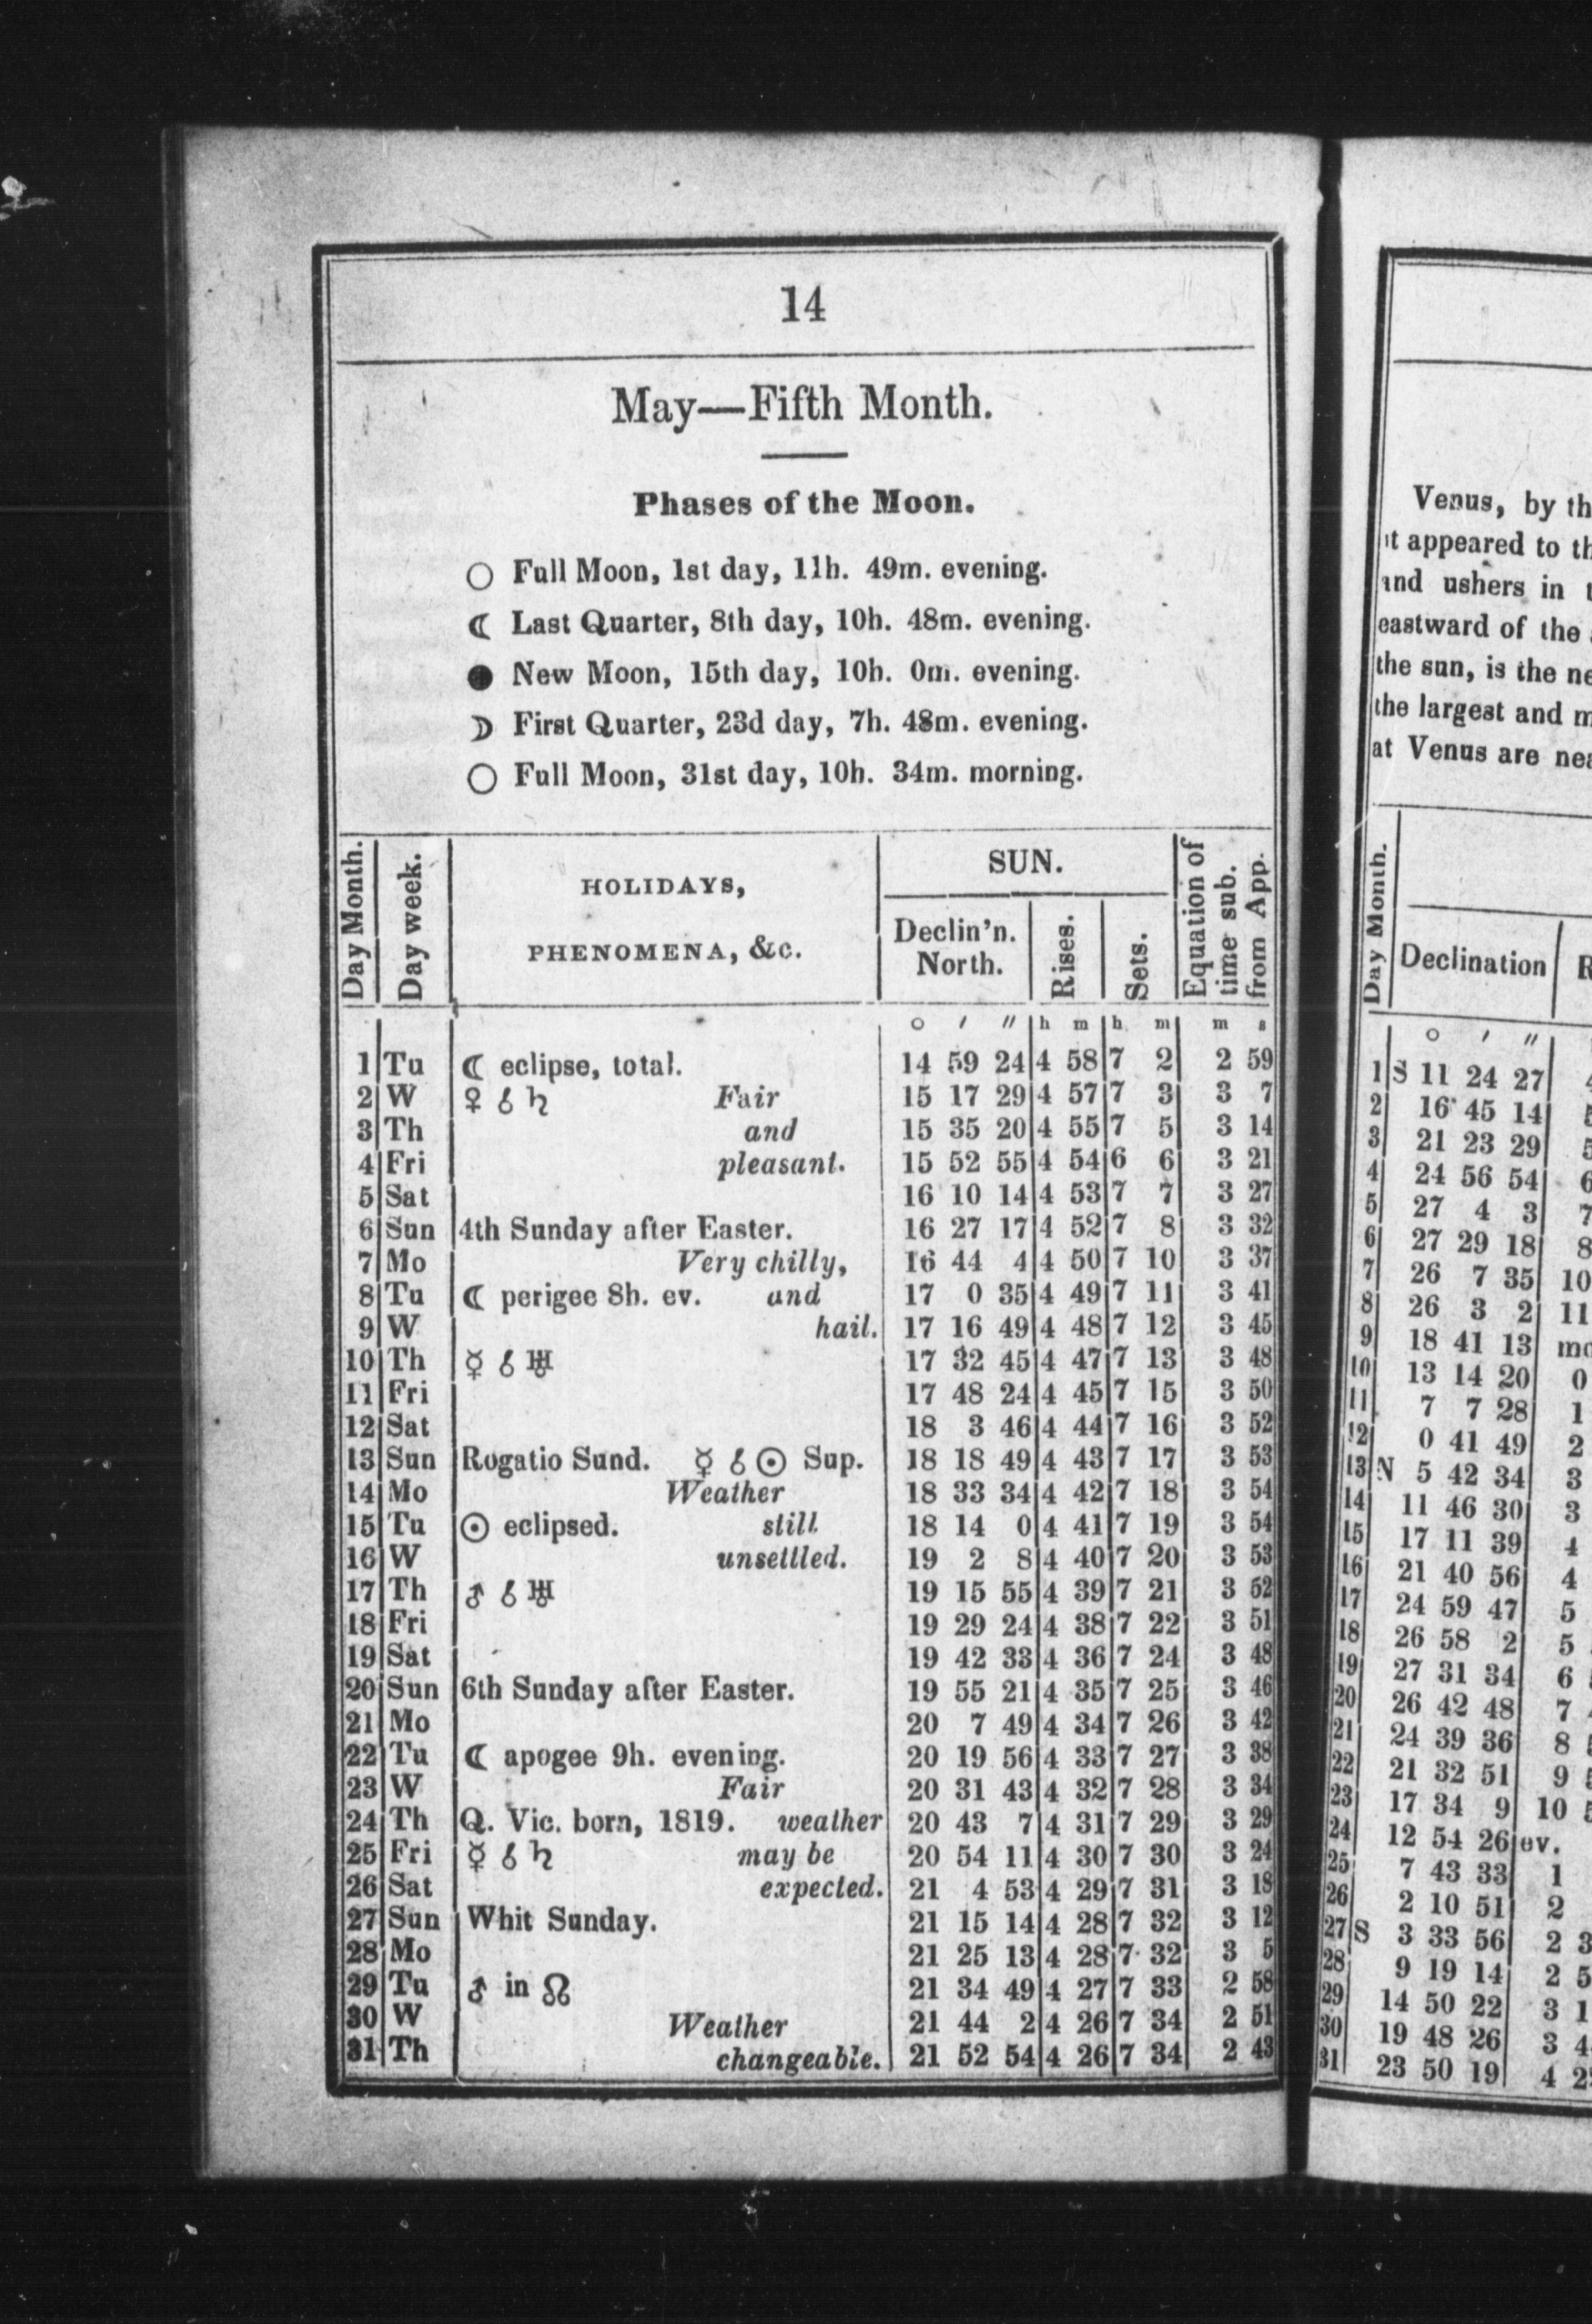 14
May—Fifth Month.
Phases of the Moon.
○ Full Moon, 1st day, 11h. 49m. evening.
☾ Last Quarter, 8th day, 10h. 48m. evening.
● New Moon, 15th day, 10h. 0m. evening.
☽ First Quarter, 23d day, 7h. 48m. evening.
○ Full Moon, 31st day, 10h. 34m. morning.
Day Month.
Day week.
HOLIDAYS,
PHENOMENA, &c.
SUN.
Declin'n.
North.
Rises.
Sets.
Equation of
time sub.
from App.
○ ′ ″ h m h m m s
1 Tu ☾ eclipse, total. 14 59 24 4 58 7 2 2 59
2 W ♀ ☌ ♄ Fair 15 17 29 4 57 7 3 3 7
3 Th and 15 35 20 4 55 7 5 3 14
4 Fri pleasant. 15 52 55 4 54 6 6 3 21
5 Sat 16 10 14 4 53 7 7 3 27
6 Sun 4th Sunday after Easter. 16 27 17 4 52 7 8 3 32
7 Mo Very chilly, 16 44 4 4 50 7 10 3 37
8 Tu ☾ perigee 8h. ev. and 17 0 35 4 49 7 11 3 41
9 W hail. 17 16 49 4 48 7 12 3 45
10 Th ☿ ☌ ♅ 17 32 45 4 47 7 13 3 48
11 Fri 17 48 24 4 45 7 15 3 50
12 Sat 18 3 46 4 44 7 16 3 52
13 Sun Rogatio Sund. ☿ ☌ ☉ Sup. 18 18 49 4 43 7 17 3 53
14 Mo Weather 18 33 34 4 42 7 18 3 54
15 Tu ☉ eclipsed. still 18 14 0 4 41 7 19 3 54
16 W unsettled. 19 2 8 4 40 7 20 3 53
17 Th ♂ ☌ ♅ 19 15 55 4 39 7 21 3 52
18 Fri 19 29 24 4 38 7 22 3 51
19 Sat 19 42 33 4 36 7 24 3 48
20 Sun 6th Sunday after Easter. 19 55 21 4 35 7 25 3 46
21 Mo 20 7 49 4 34 7 26 3 42
22 Tu ☾ apogee 9h. evening. 20 19 56 4 33 7 27 3 38
23 W Fair 20 31 43 4 32 7 28 3 34
24 Th Q. Vic. born, 1819. weather 20 43 7 4 31 7 29 3 29
25 Fri ☿ ☌ ♄ may be 20 54 11 4 30 7 30 3 24
26 Sat expected. 21 4 53 4 29 7 31 3 18
27 Sun Whit Sunday. 21 15 14 4 28 7 32 3 12
28 Mo 21 25 13 4 28 7 32 3 5
29 Tu ♂ in ☊ 21 34 49 4 27 7 33 2 58
30 W Weather 21 44 2 4 26 7 34 2 51
31 Th changeable. 21 52 54 4 26 7 34 2 43
Venus, by th
it appeared to th
and ushers in t
eastward of the
the sun, is the ne
the largest and m
at Venus are nea
Day Month.
Declination
R
○ ′ ″
1 S 11 24 27
2 16 45 14 5
3 21 23 29 5
4 24 56 54 6
5 27 4 3 7
6 27 29 18 8
7 26 7 35 10
8 26 3 2 11
9 18 41 13 mo
10 13 14 20 0
11 7 7 28 1
12 0 41 49 2
13 N 5 42 34 3
14 11 46 30 3
15 17 11 39 4
16 21 40 56 4
17 24 59 47 5
18 26 58 2 5
19 27 31 34 6
20 26 42 48 7
21 24 39 36 8
22 21 32 51 9
23 17 34 9 10
24 12 54 26 ev.
25 7 43 33 1
26 2 10 51 2
27 S 3 33 56 2 3
28 9 19 14 2 5
29 14 50 22 3 1
30 19 48 26 3 4
31 23 50 19 4 2